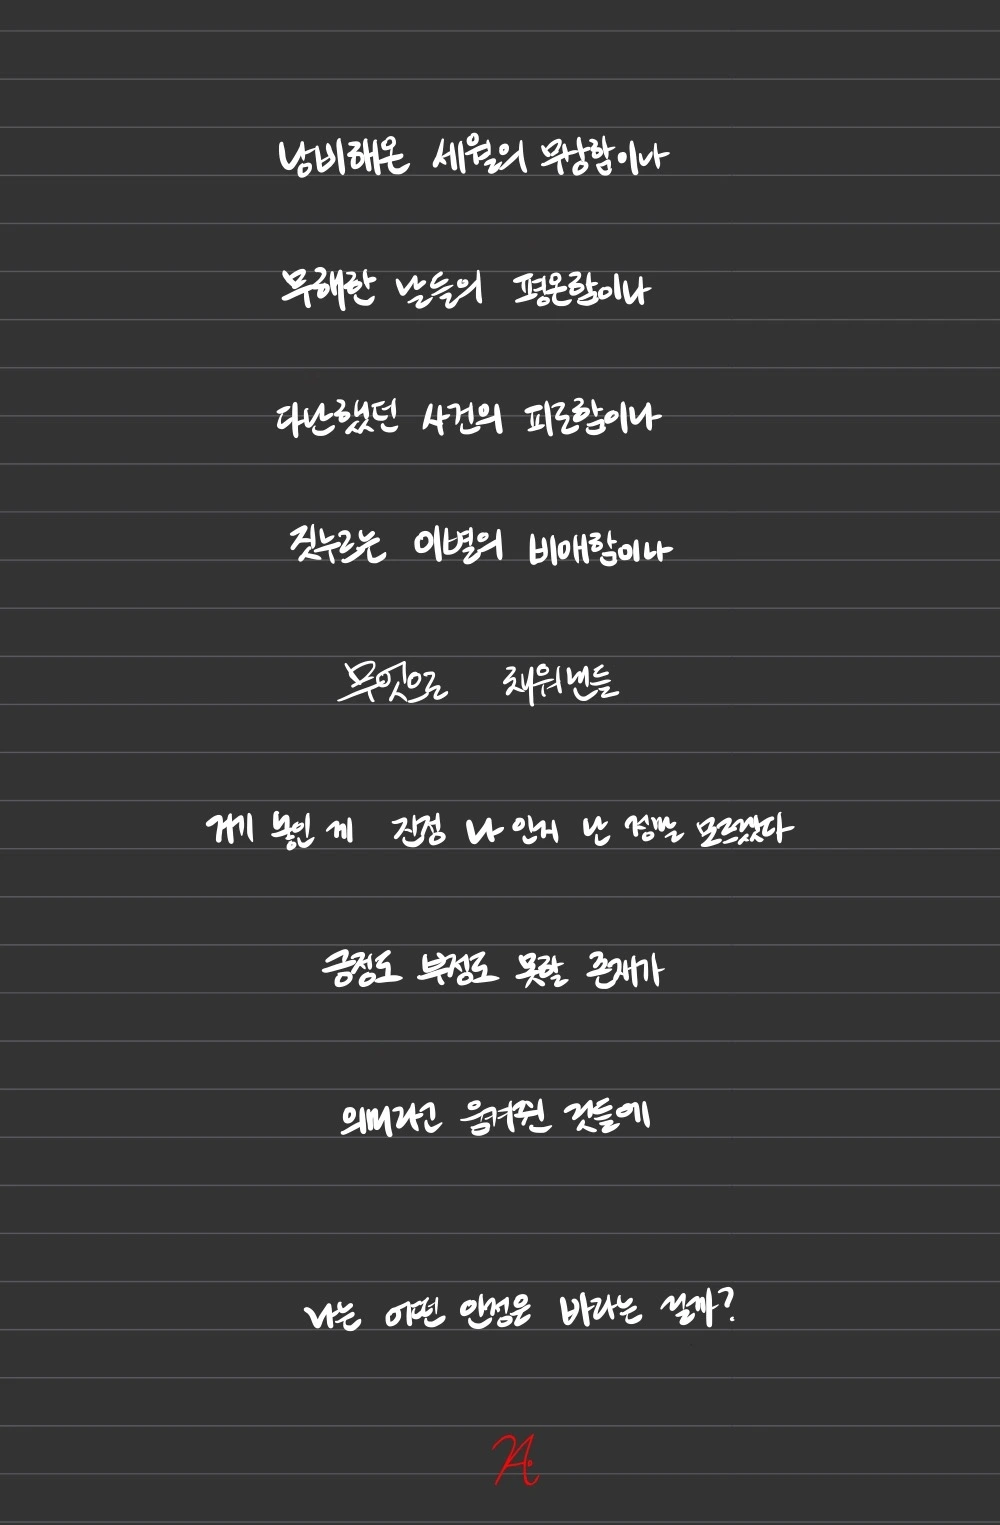 낭비해온 세월의 무상함이나
무해한 날들의 평온함이나
다난했던 사건의 피로함이나
짓누르는 이별의 비애함이나
무엇으로 채워낸들
거기 놓인 게 진정 나 인지 난 정말 모르겠다
긍정도 부정도 못할 존재가
의미라고 움켜쥔 것들에
나는 어떤 안정은 바라는 걸까?